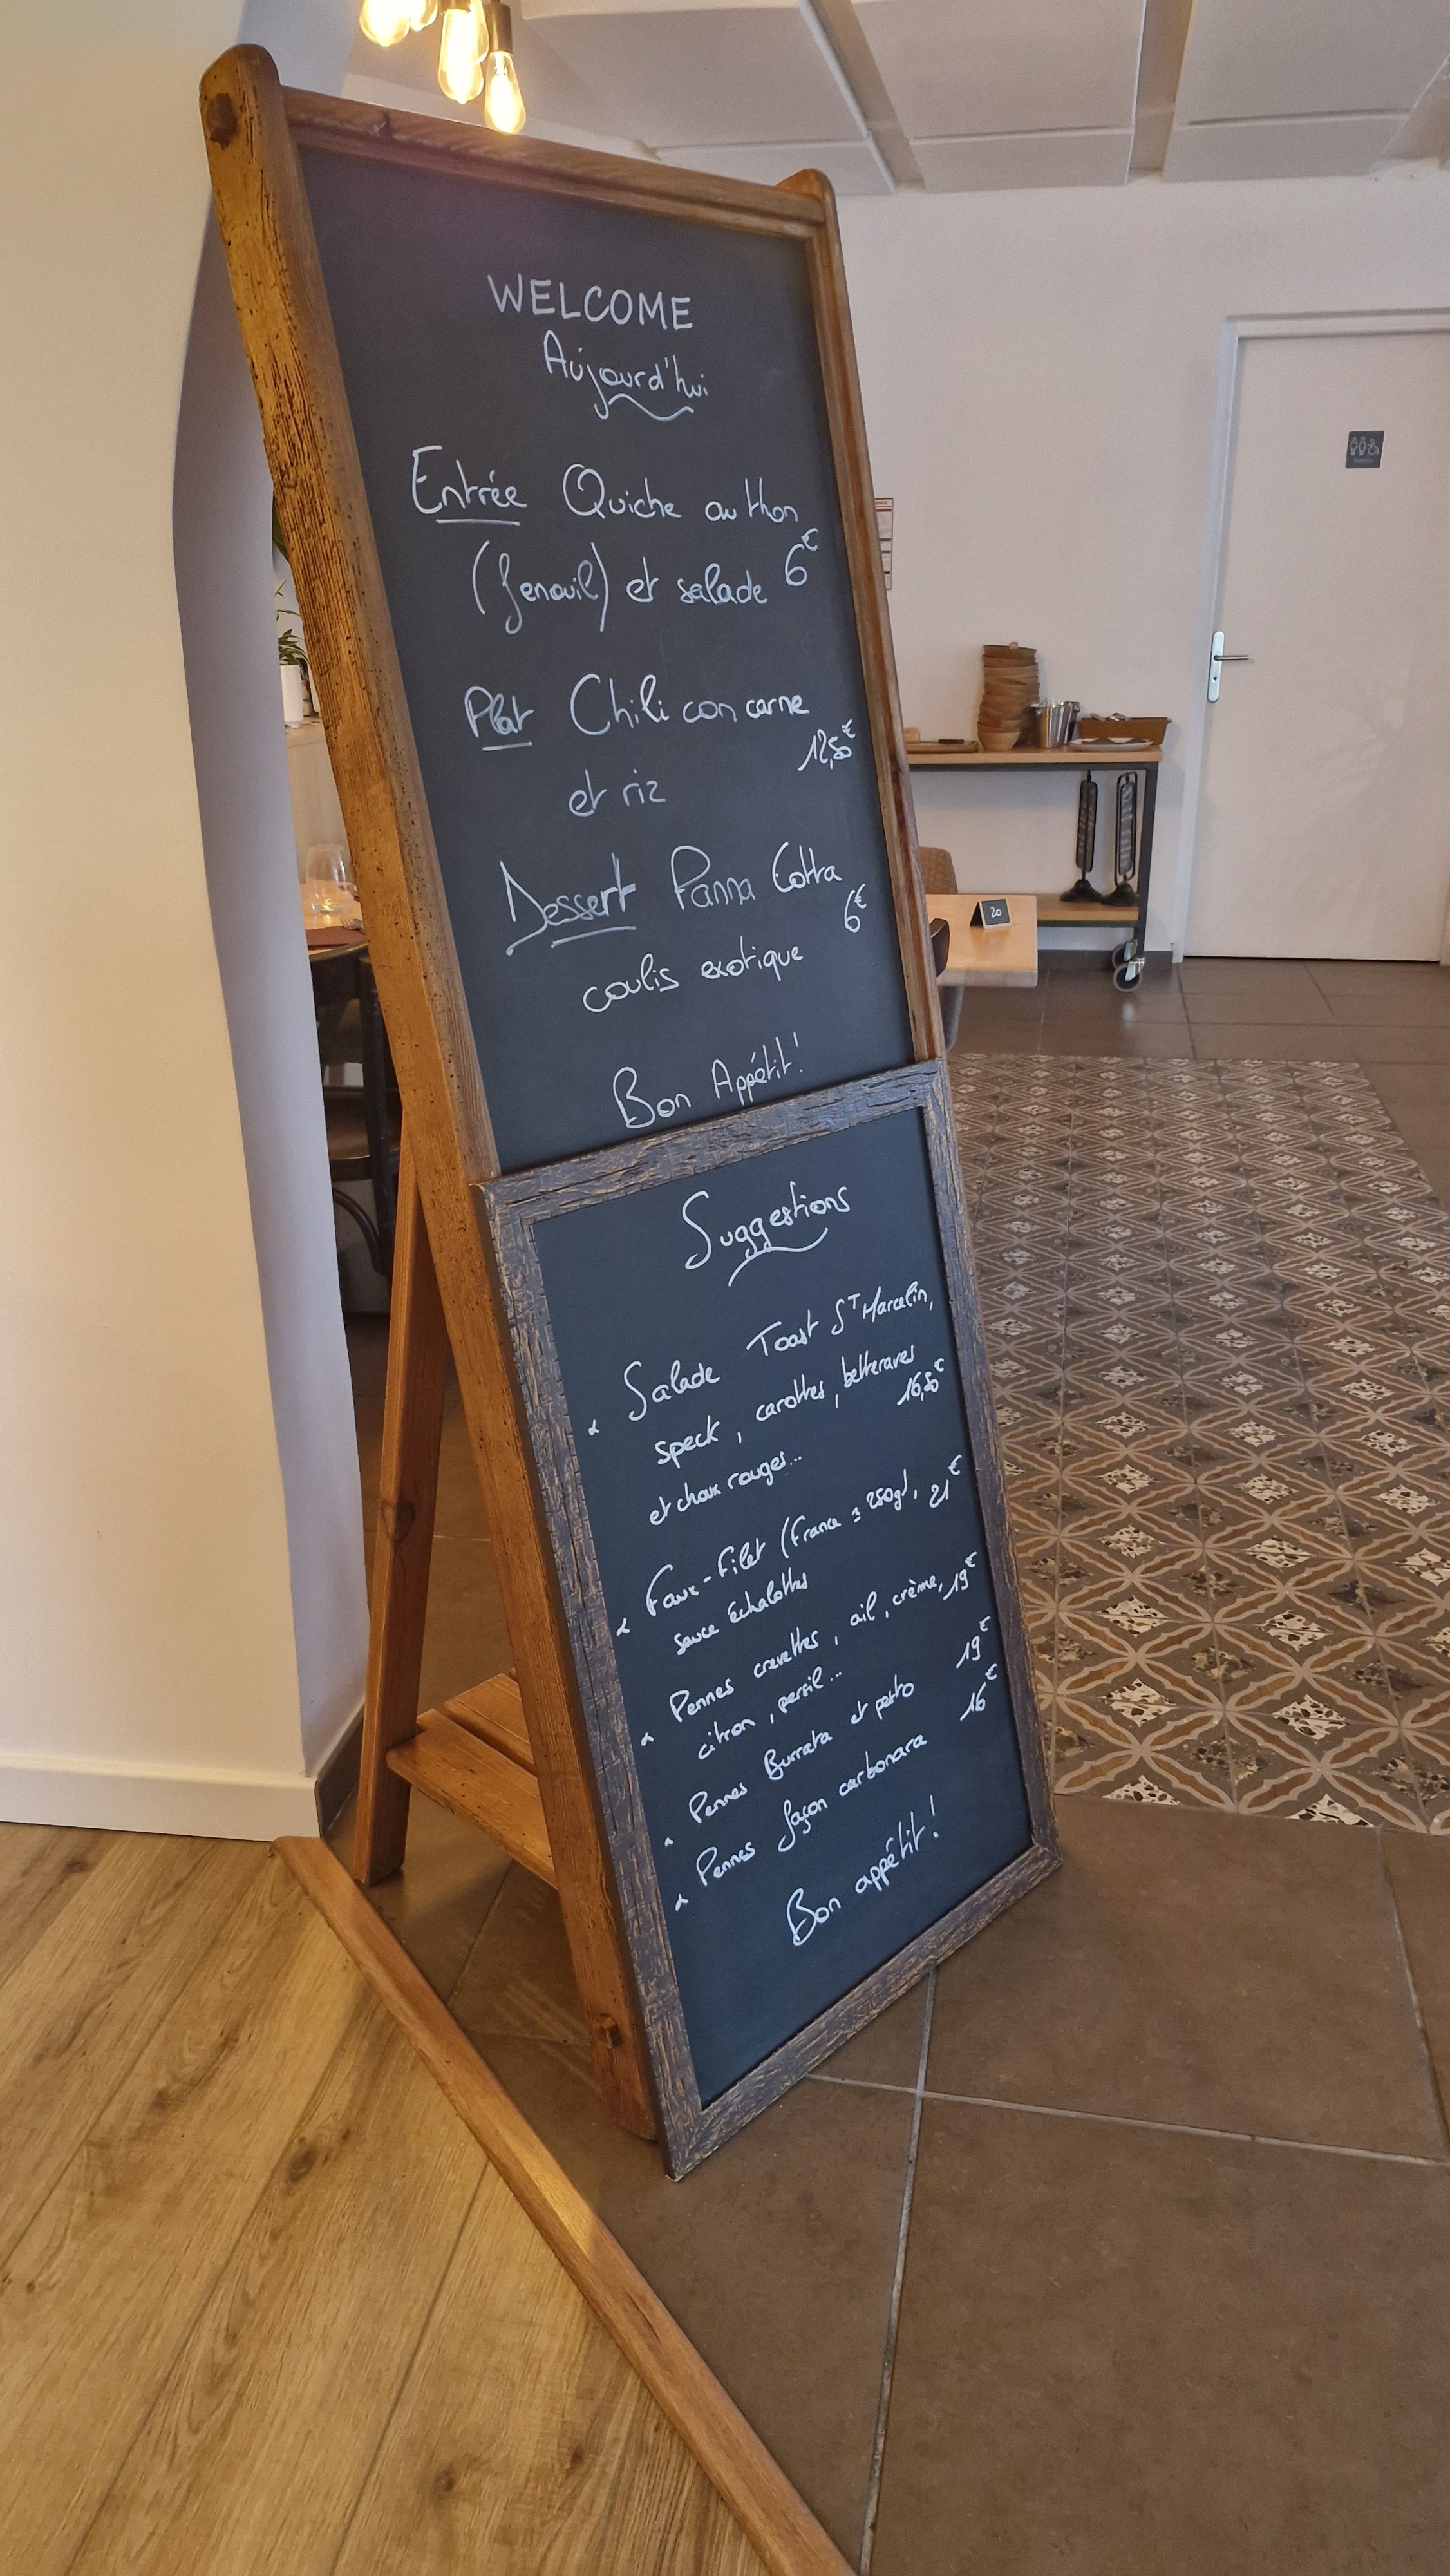 WELCOME
Aujourd'hui
Entrée Quiche au thon
(fenouil) et salade 6€
Plat Chili con carne
12,50€
et riz
Dessert Panna Cotta
6€
coulis exotique
Bon Appétit!
Suggestions
Salade Toast ST Marcelin,
speck, carottes, betteraves
16,50€
et choux rouges...
Faux-Filet (France ± 250g), 21€
sauce échalottes
Pennes crevettes, ail, crème, 19€
citron, persil...
Pennes Burrata et pesto 19€
Pennes façon carbonara 16€
Bon appétit!
20